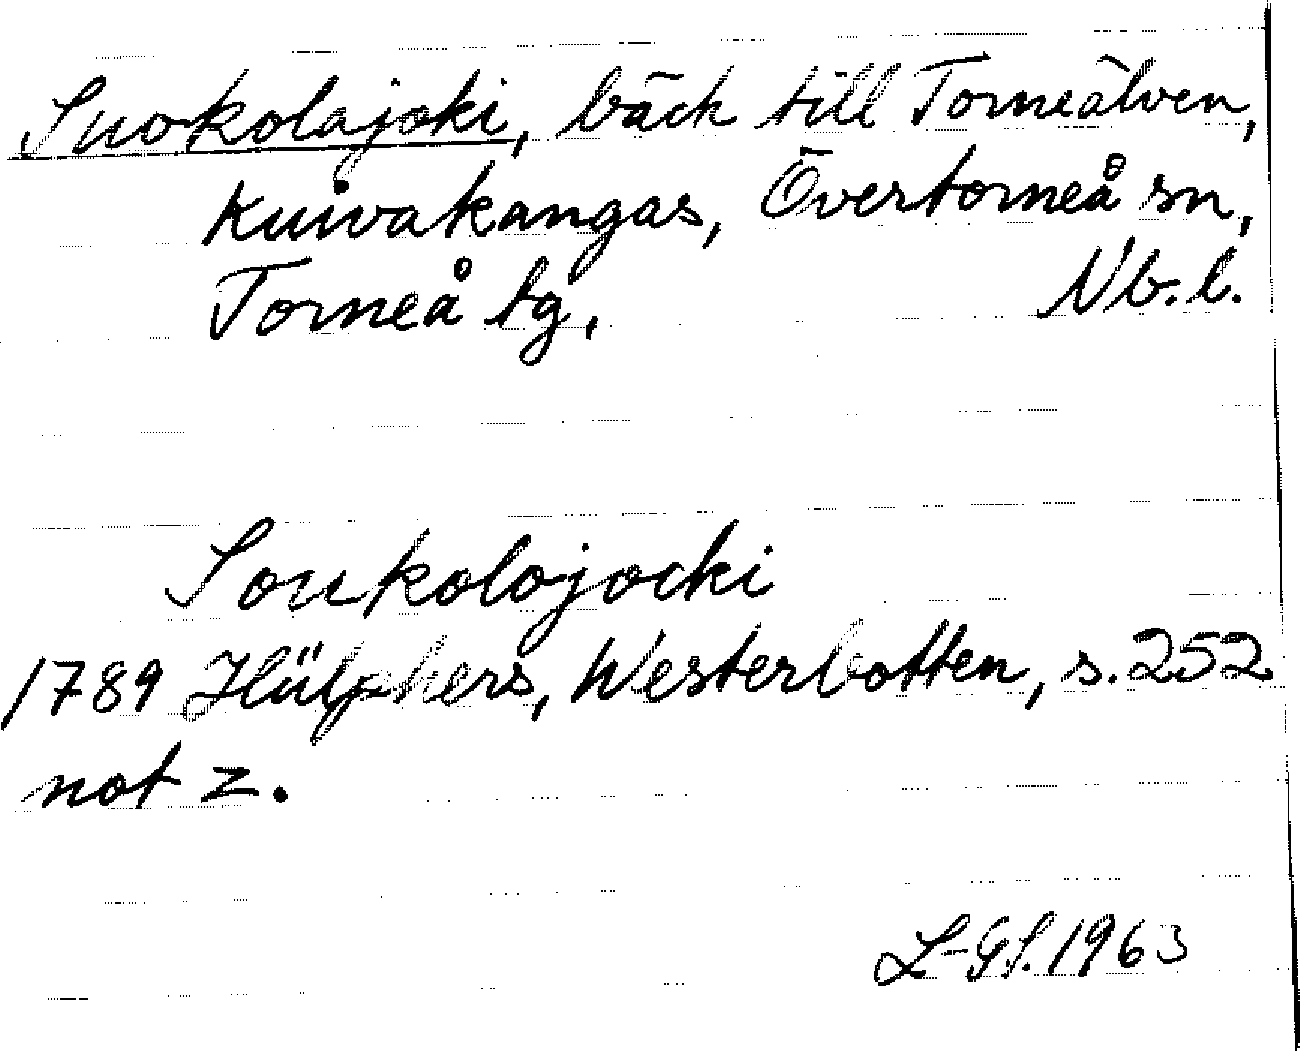 Suokolajoki, bäck till Torneälven,
Kuivakangas, Övertorneå sn,
Torneå tg, Nb. l.
Soukolojocki
1789 Hülphers, Westerbotten, s. 252
not z.
L-GL. 1963